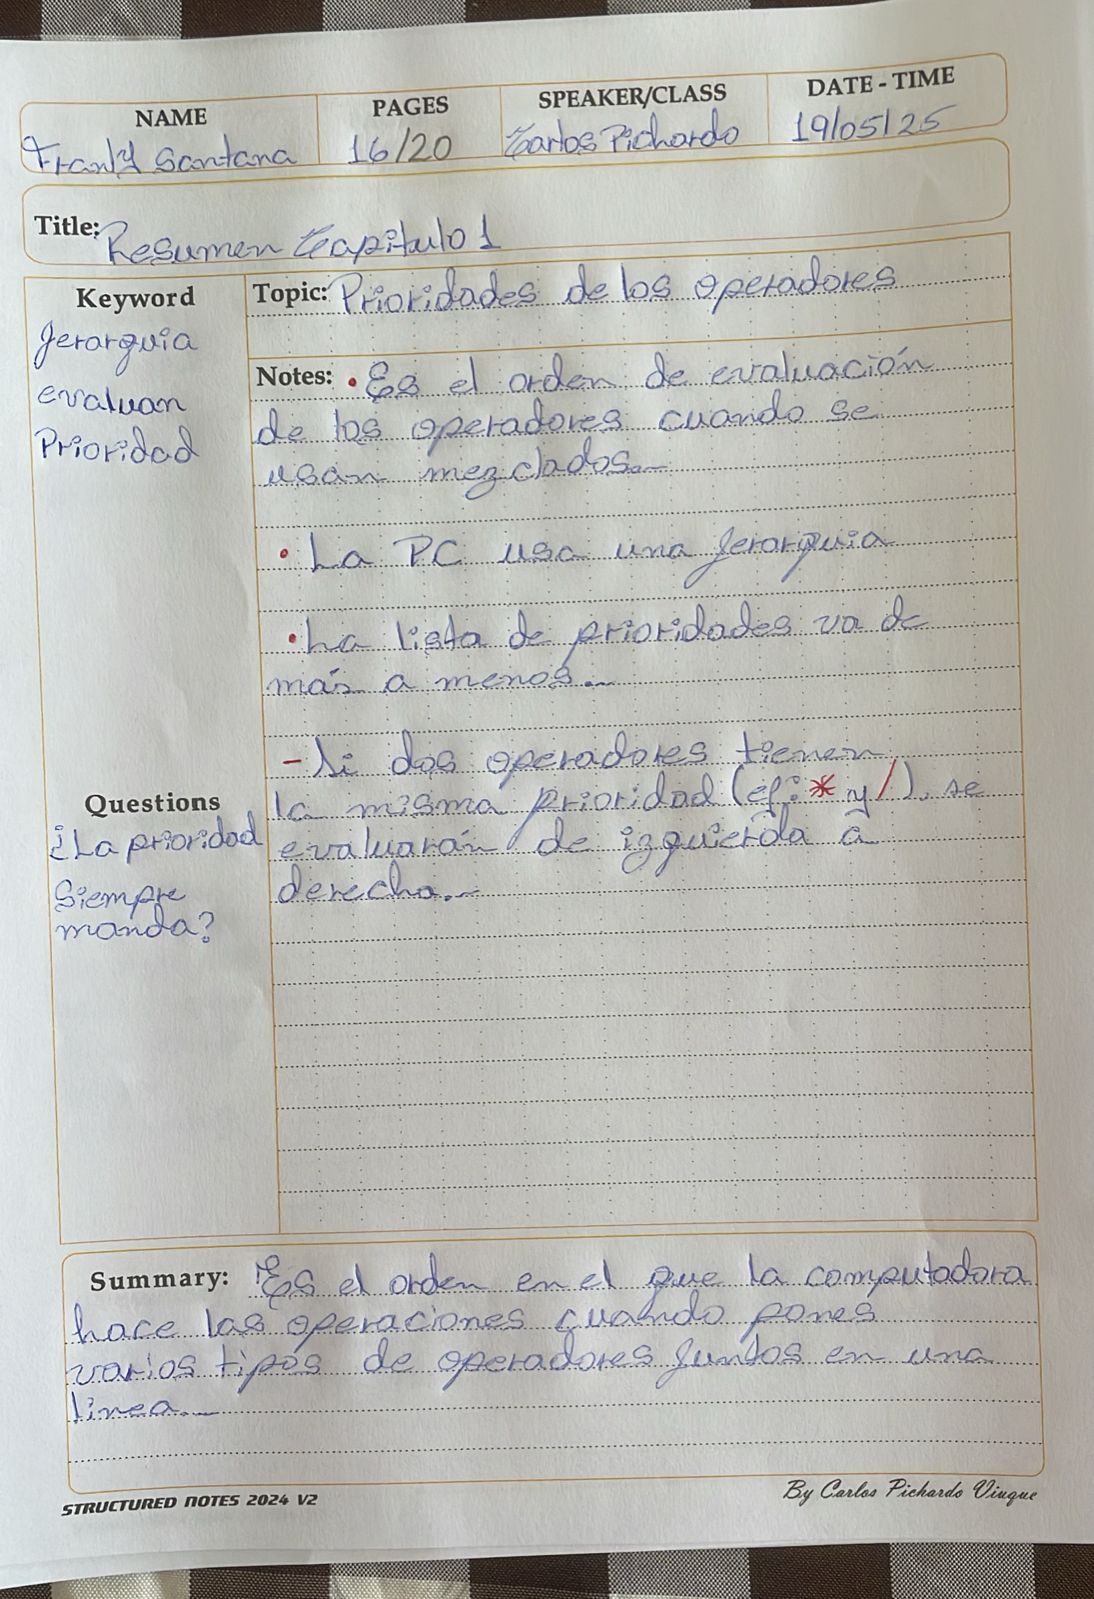 NAME PAGES SPEAKER/CLASS DATE - TIME
Frank Santana 16/20 Carlos Pichardo 19/05/25
Title: Resumen Capitulo 1
Keyword
Jerarquia
evaluan
Prioridad
Topic: Prioridades de los operadores
Notes: • Es el orden de evaluación
de los operadores cuando se
usan mezclados.
• La PC usa una Jerarquia
• La lista de prioridades va de
más a menos...
- Si dos operadores tienen
la misma prioridad (ej: * y /), se
evaluarán de izquierda a
derecha.
Questions
¿La prioridad
Siempre
manda?
Summary: Es el orden en el que la computadora
hace las operaciones cuando pones
varios tipos de operadores Juntos en una
linea.
STRUCTURED NOTES 2024 V2
By Carlos Pichardo Viuque